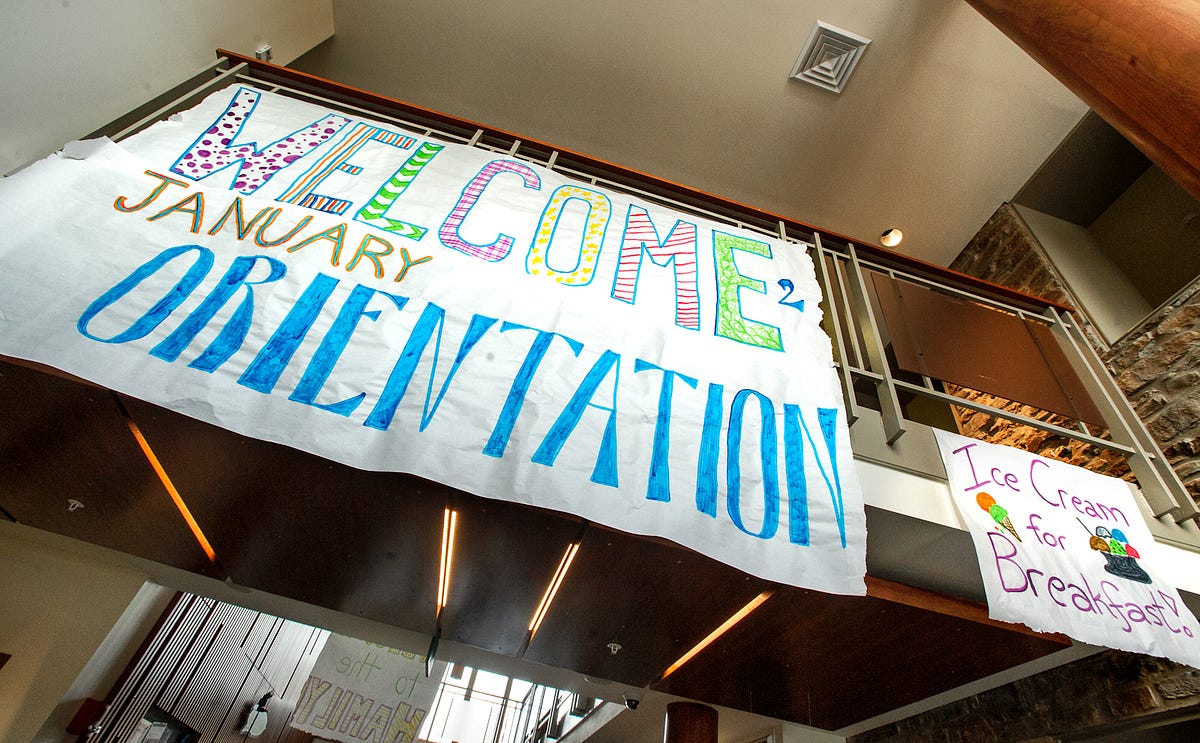 WELCOME 2
JANUARY
ORIENTATION
Ice Cream
for
Breakfast!
to the
HAMILY